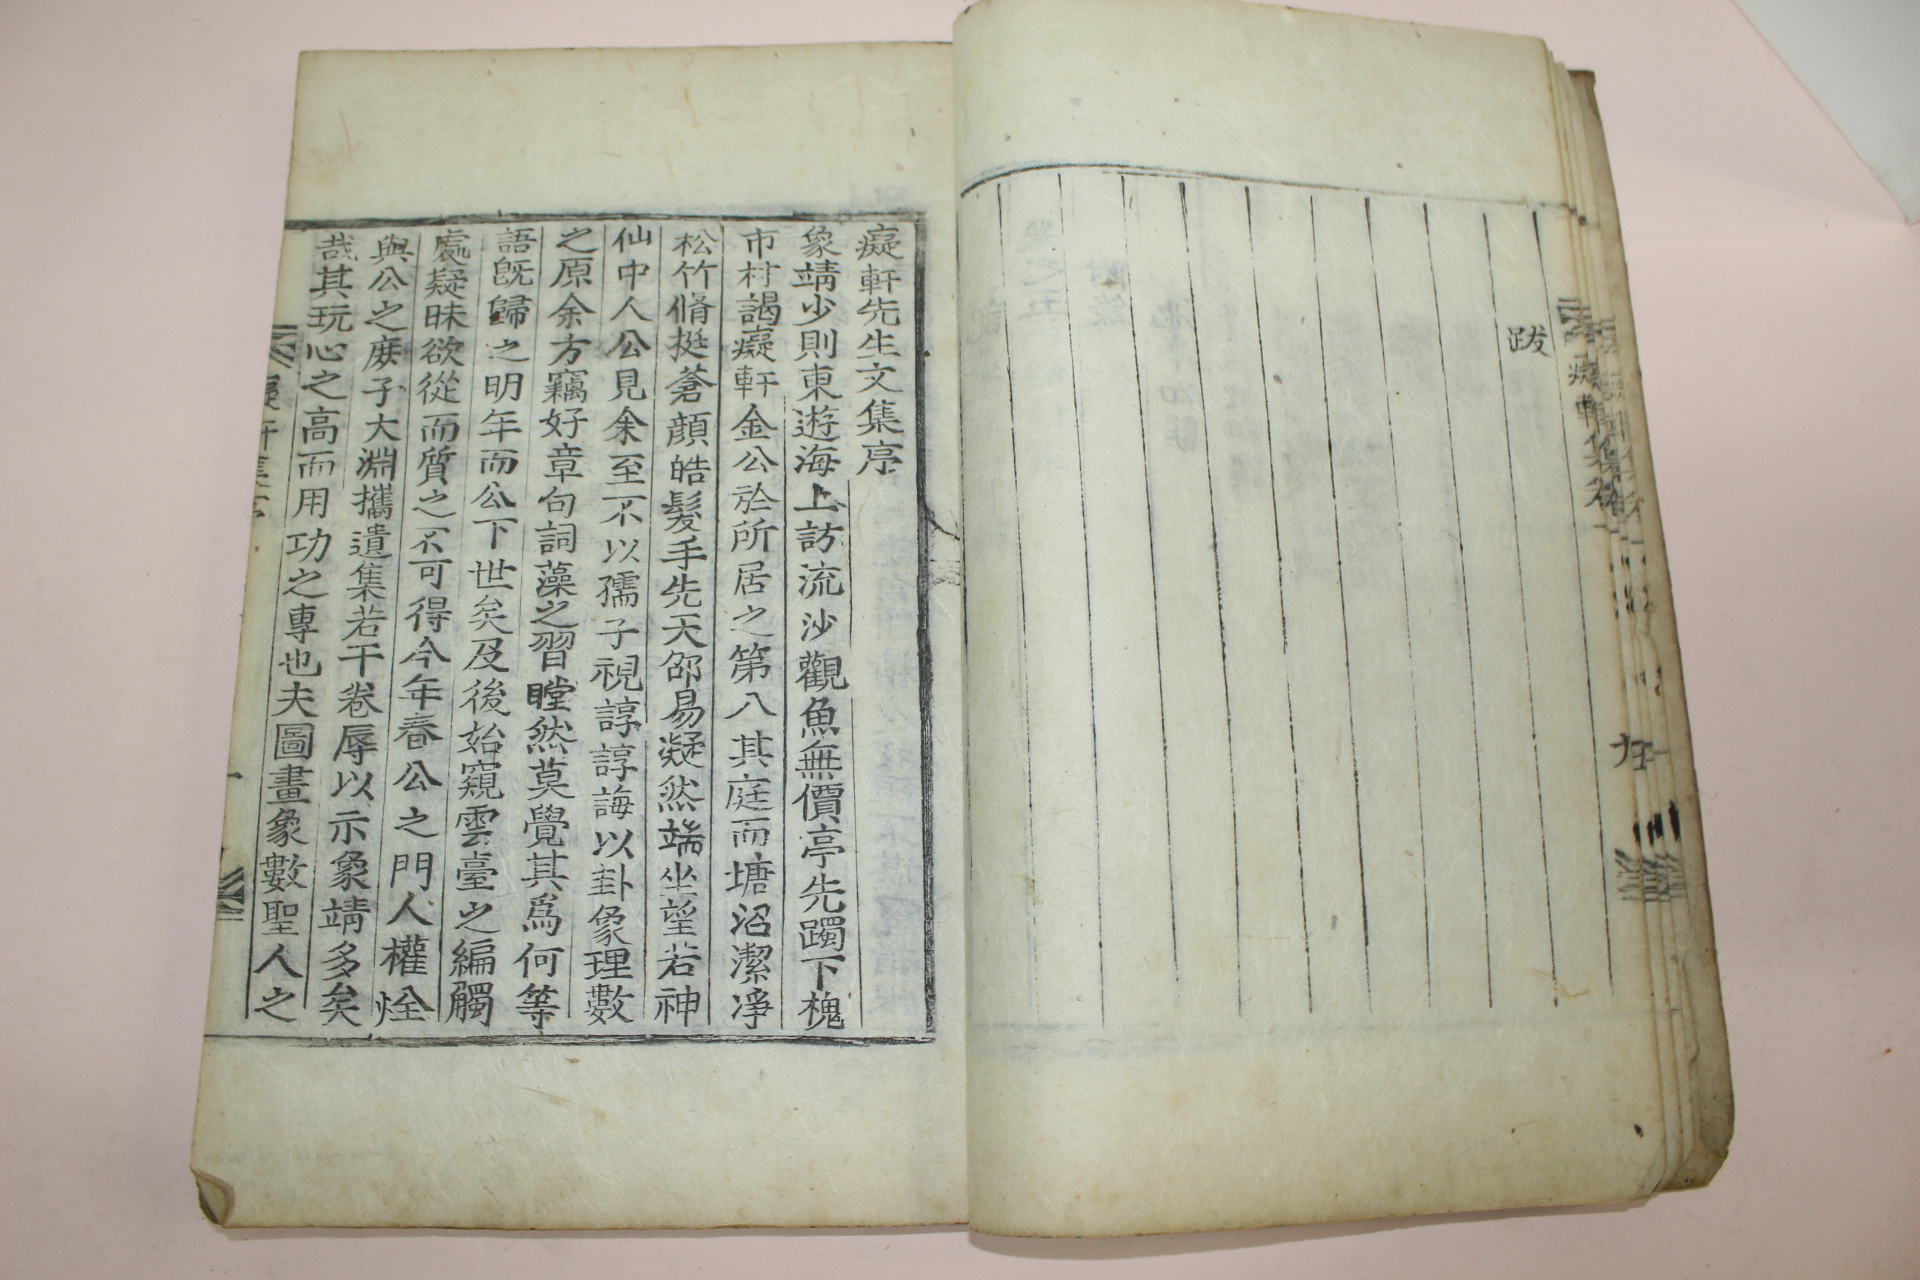 跋
癡軒先生文集序
象靖少則東遊海上訪流沙觀魚無價亭先躅下槐
市村謁癡軒金公於所居之第八其庭而塘沼潔凈
松竹脩挺蒼顔皓髮手先天卲易凝然端坐望若神
仙中人公見余至不以孺子視諄諄誨以卦象理數
之原余方竊好章句詞藻之習瞠然莫覺其爲何等
語旣歸之明年而公下世矣及後始窺雲臺之編觸
處疑昧欲從而質之不可得今年春公之門人權烇
與公之庶子大淵攜遺集若干卷辱以示象靖多矣
哉其玩心之高而用功之專也夫圖畫象數聖人之